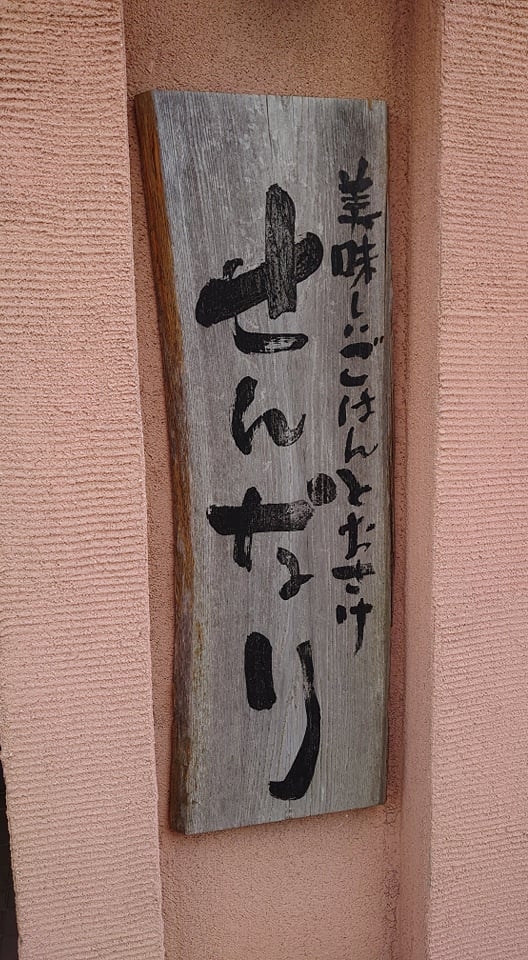 美味しいごはんとおさけ
せんなり